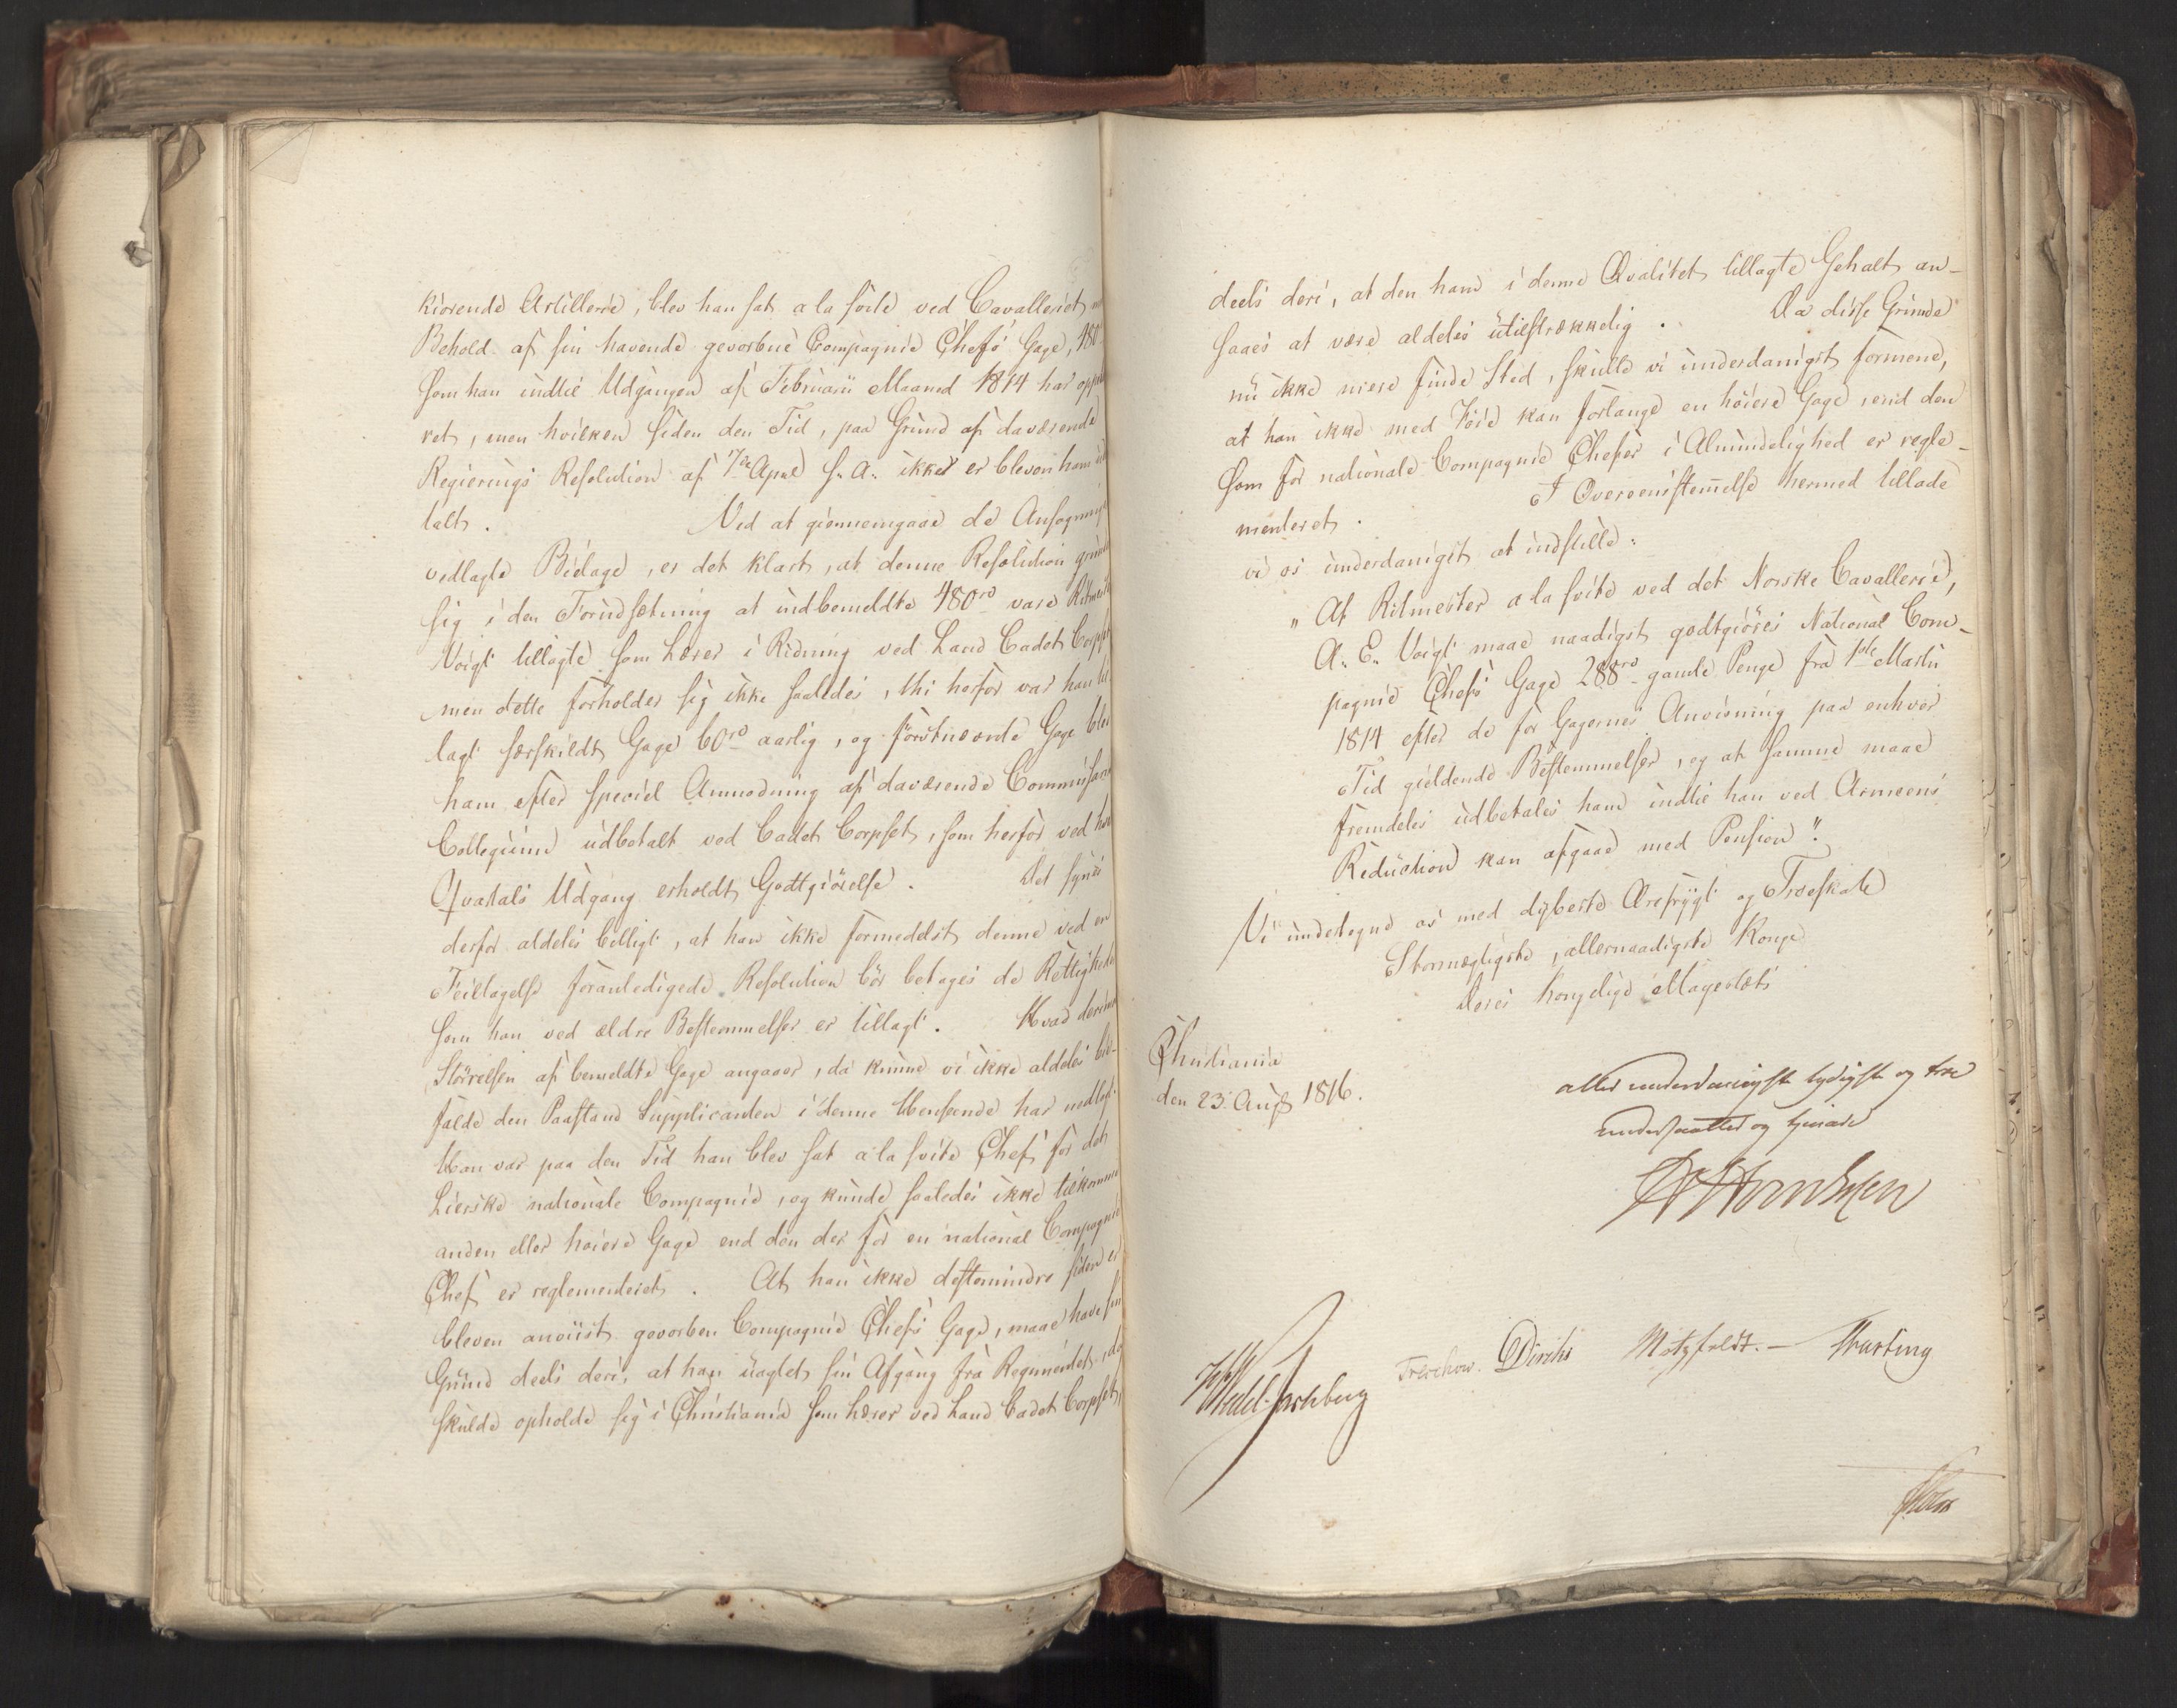 kiørende Artillerie, blev han sat a la suite ved Cavalleriet
Behold af sin havende gevorbne Compagnie Chefs Gage, 480
som han indtil Udgangen af Februarii Maaned 1814 har oppe
ret, men hvilken siden den Tid, paa Grund af daværende
Regierings Resolution af 7de April s. A. ikke er bleven ham
talt. Ved at giennemgaae de Ansøgning
vedlagte Bielage, er det klart, at denne Resolution
sig i den Forudsætning at indbemeldte 480rd vare
Voigt tillagte som Lærer i Ridning ved Land Cadet
men dette forholder sig ikke saaledes, thi herfor var han til
lagt særskildt Gage 60rd aarlig, og førstnævnte Gage blev
ham efter speciel Anmodning af daværende Commissar
Collegium udbetalt ved Cadet Corpset, som herfor ved
Qvartals Udgang erholdt Godtgiørelse. Det synes
derfor aldeles billigt, at han ikke formedelst denne ved en
Feiltagelse foranledigede Resolution bør betages de Rettighed
som han ved ældre Bestemmelser er tillagt. Hvad derimod
Størrelsen af bemeldte Gage angaaer, da kunne vi ikke aldeles bi-
falde den Paastand Supplicanten i denne Henseende har nedlagt
Han var paa den Tid han blev sat a la suite Chef for det
Lierske nationale Compagnie, og kunde saaledes ikke tilkomme
anden eller høiere Gage end den der for en national Compagnie
Chef er reglementeret. At han ikke destomindre siden er
bleven anviist gevorben Compagnie Chefs Gage, maae have sin
Grund deels deri, at han uagtet sin Afgang fra Regimentet, da
skulde opholde sig i Christiania som Lærer ved Land Cadet Corpset,
deels deri, at den ham i denne Qvalitet tillagte Gehalt an-
saaes at være aldeles utilstrækkelig. Da disse Grunde
nu ikke mere finde Sted, skulle vi underdanigst formene,
at han ikke med Føie kan forlange en høiere Gage, end den
som for nationale Compagnie Chefer i Almindelighed er regle-
menteret. I Overeensstemmelse hermed tillade
vi os underdanigst at indstille:
"At Ritmester a la suite ved det Norske Cavallerie,
A. E. Voigt maae naadigst godtgiøres National Com-
pagnie Chefs Gage 288rd gamle Penge fra 1ste Martii
1814 efter de for Gagernes Anviisning paa enhver
Tid gieldende Bestemmelser, og at samme maae
fremdeles udbetales ham indtil han ved Armeens
Reduction kan afgaae med Pension".
Vi undertegne os med dybeste Ærefrygt og Troeskab
Stormægtigste, allernaadigste Konge
Deres kongelige Majestæts
Christiania
den 23 Augst 1816.
allerunderdanigste lydigste og troe
undersaatter og tjenere
Wedel-Jarlsberg Treschow. Diriks Motzfeldt. — Thaarling